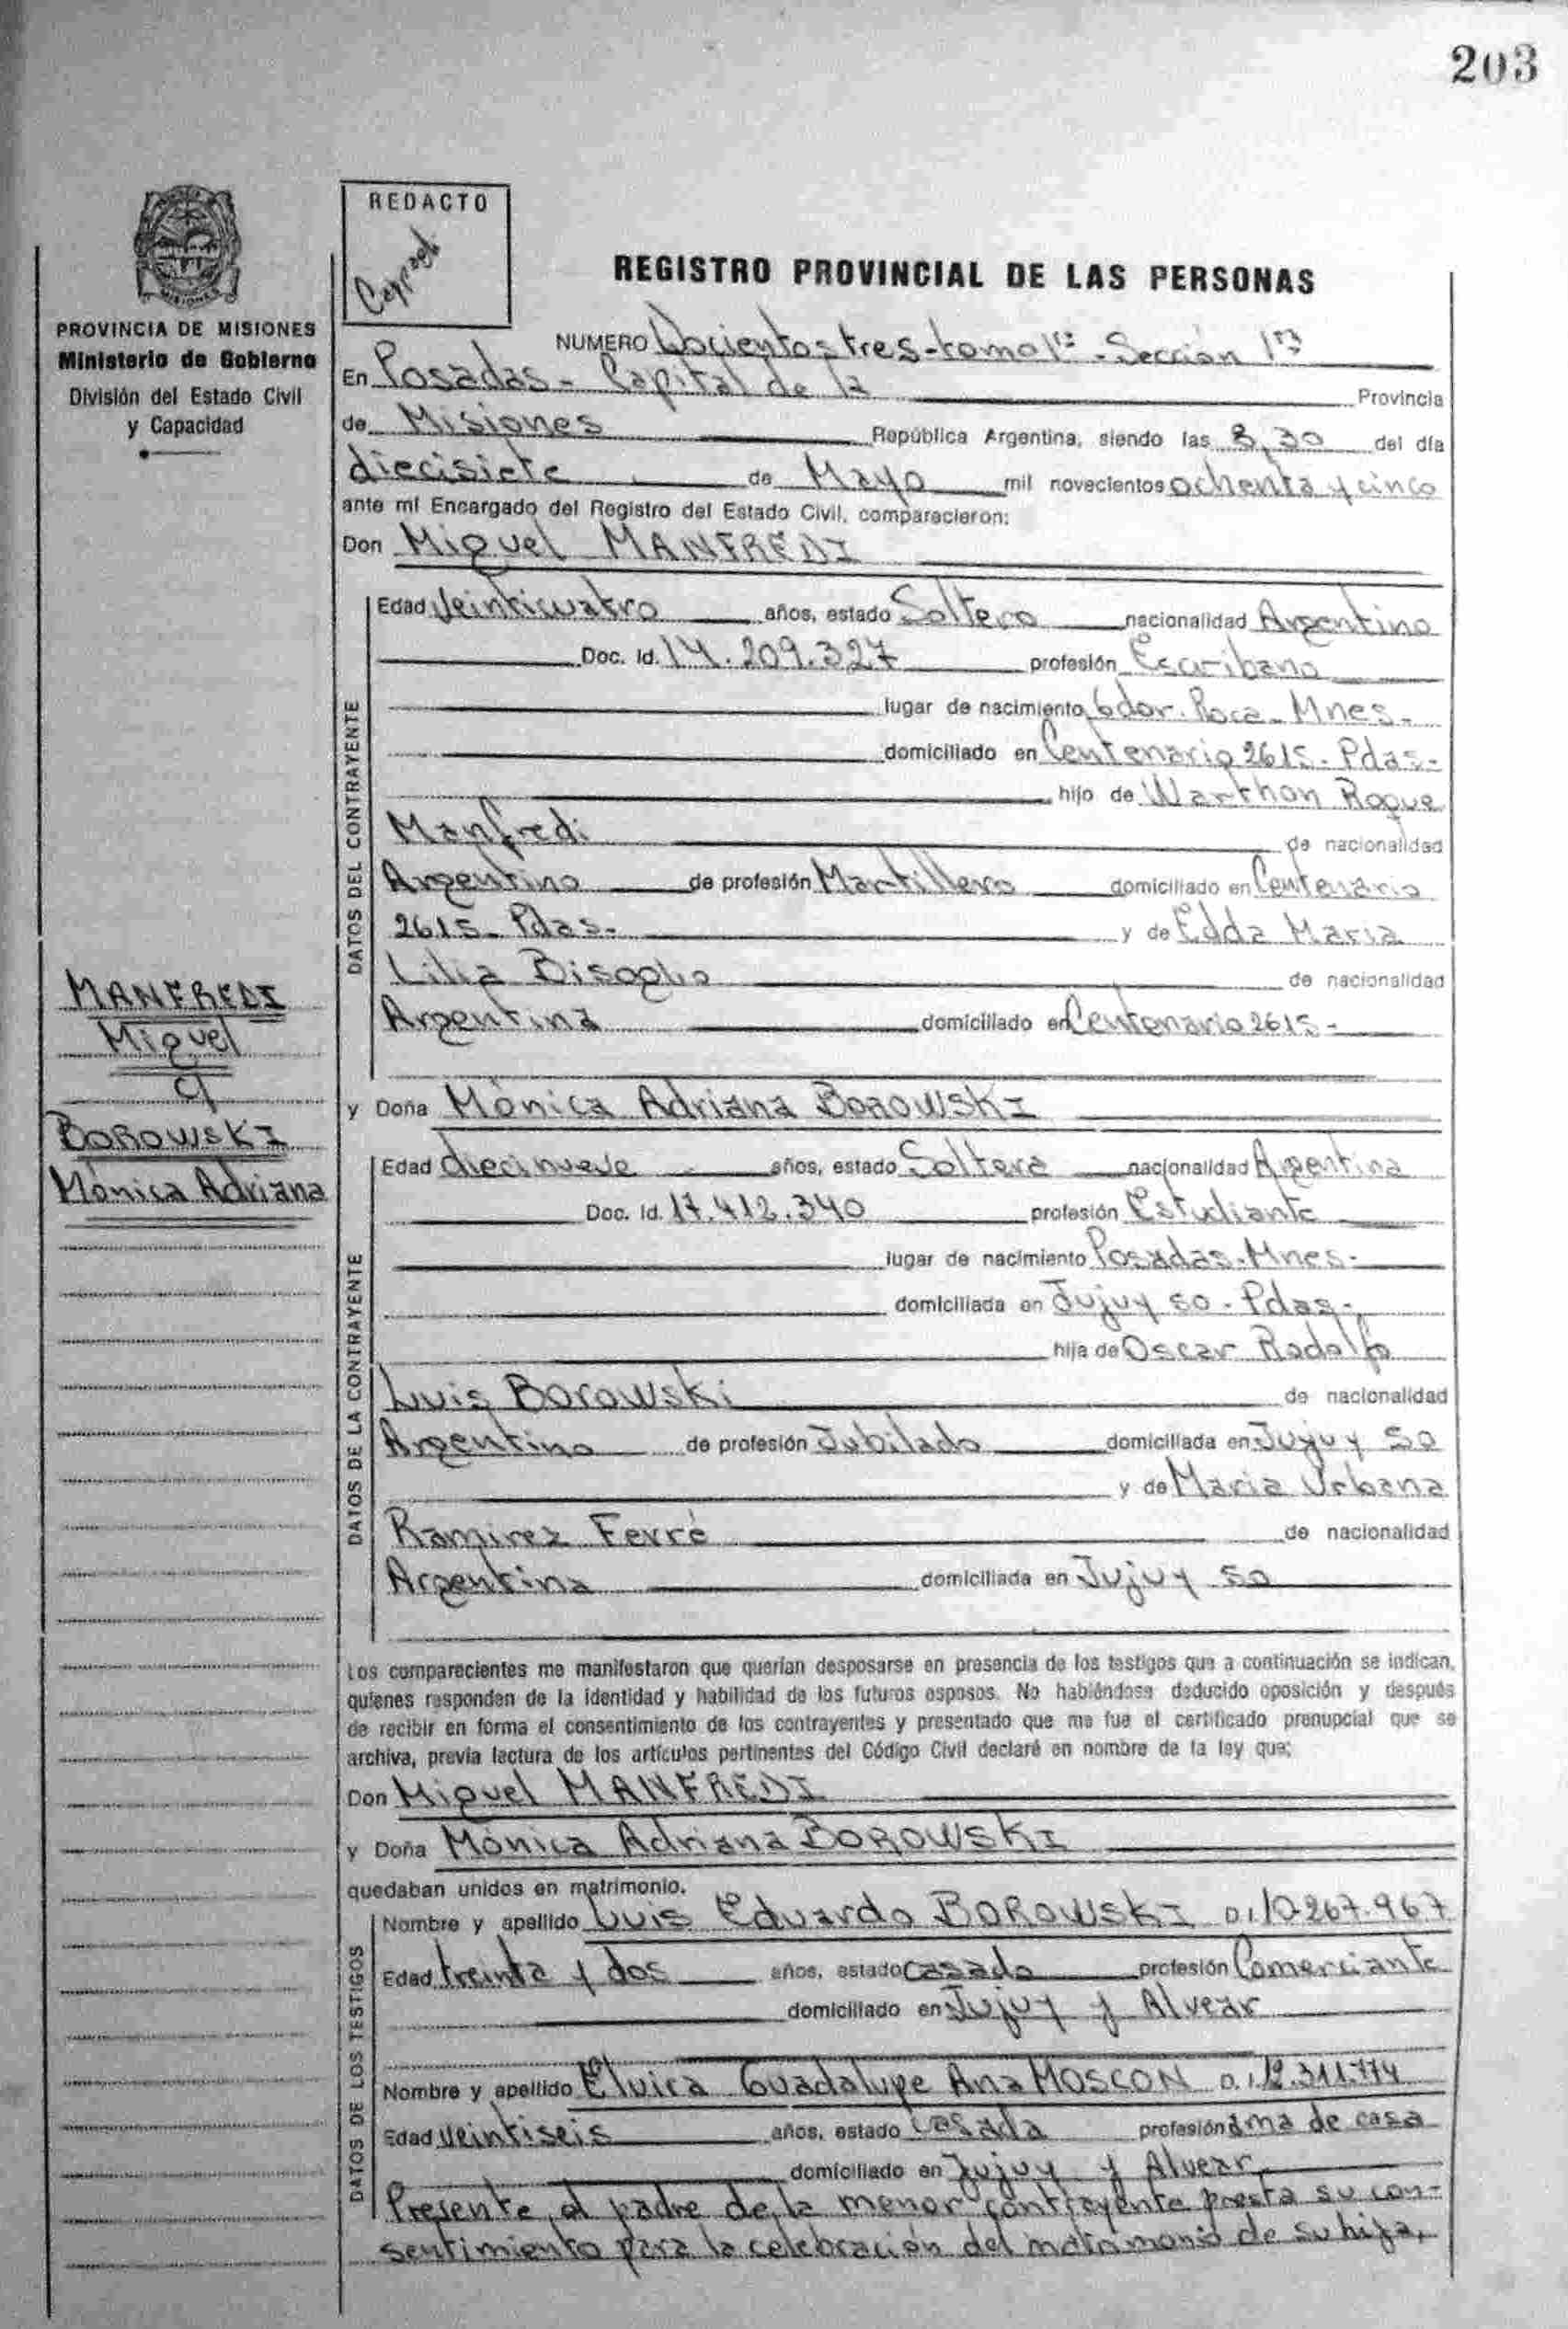 203
REDACTO
MISIONES
PROVINCIA DE MISIONES
Ministerio de Gobierno
División del Estado Civil
y Capacidad
REGISTRO PROVINCIAL DE LAS PERSONAS
NUMERO Docientos tres - tomo 1º - Sección 1ª
En Posadas - Capital de la Provincia
de Misiones República Argentina, siendo las 8,30 del día
diecisiete de Mayo mil novecientos ochenta y cinco
ante mí Encargado del Registro del Estado Civil, comparecieron:
Don Miguel MANFREDI
DATOS DEL CONTRAYENTE
Edad Veinticuatro años, estado Soltero nacionalidad Argentino
Doc. Id. 14.209.327 profesión Escribano
lugar de nacimiento Gdor. Roca - Mnes.
domiciliado en Centenario 2615 - Pdas-
hijo de Warthon Roque
Manfredi de nacionalidad
Argentino de profesión Martillero domiciliado en Centenario
2615 - Pdas- y de Edda Maria
Lilia Bisoglio de nacionalidad
Argentina domiciliado en Centenario 2615-
MANFREDI
Miguel
c/
BOROWSKI
Mónica Adriana
y Doña Mónica Adriana BOROWSKI
DATOS DE LA CONTRAYENTE
Edad diecinueve años, estado Soltera nacionalidad Argentina
Doc. Id. 17.412.340 profesión Estudiante
lugar de nacimiento Posadas - Mnes-
domiciliada en Jujuy 50 - Pdas-
hija de Oscar Rodolfo
Luis Borowski de nacionalidad
Argentino de profesión Jubilado domiciliada en Jujuy 50
y de Maria Urbana
Ramirez Ferré de nacionalidad
Argentina domiciliada en Jujuy 50
Los comparecientes me manifestaron que querían desposarse en presencia de los testigos que a continuación se indican,
quienes responden de la identidad y habilidad de los futuros esposos. No habiéndose deducido oposición y después
de recibir en forma el consentimiento de los contrayentes y presentado que me fue el certificado prenupcial que se
archiva, previa lectura de los artículos pertinentes del Código Civil declaré en nombre de la ley que:
Don Miguel MANFREDI
y Doña Mónica Adriana BOROWSKI
quedaban unidos en matrimonio.
DATOS DE LOS TESTIGOS
Nombre y apellido Luis Eduardo BOROWSKI D.I. 10.267.967
Edad treinta y dos años, estado casado profesión Comerciante
domiciliado en Jujuy y Alvear
Nombre y apellido Elvira Guadalupe Ana MOSCON D.I. 12.311.774
Edad veintiseis años, estado casada profesión ama de casa
domiciliado en Jujuy y Alvear,
Presente el padre de la menor contrayente presta su con-
sentimiento para la celebración del matrimonio de su hija,